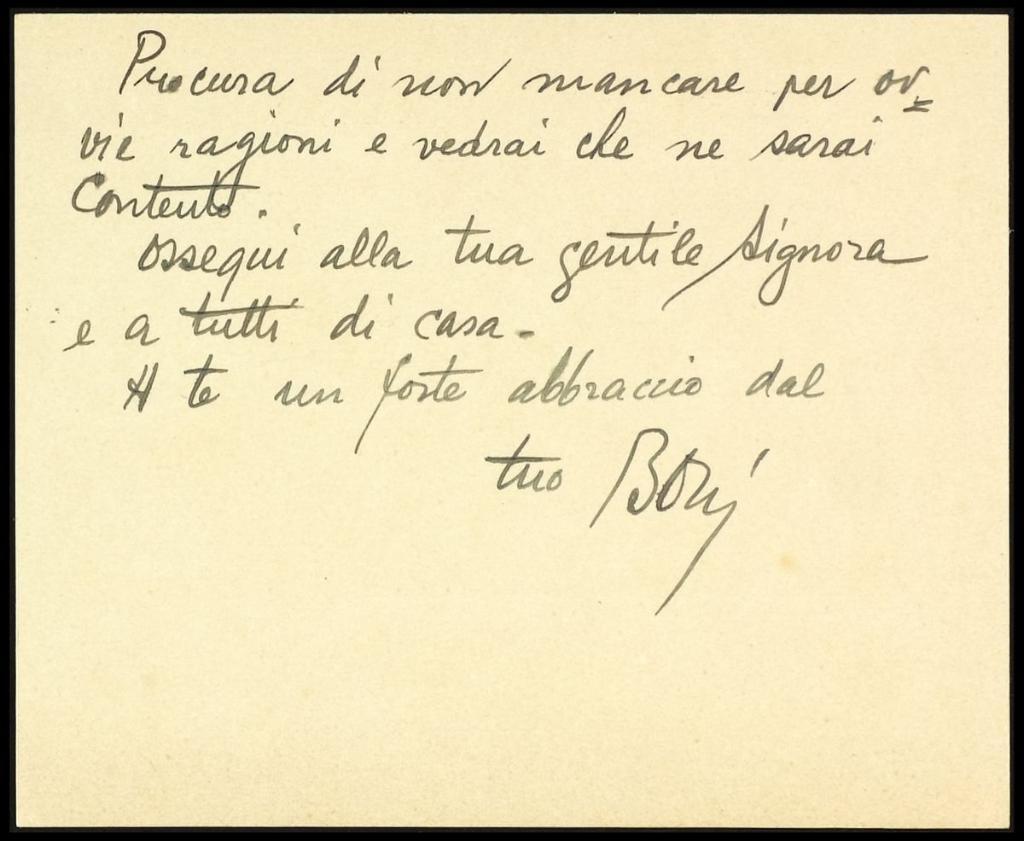 Procura di non mancare per ov=
vie ragioni e vedrai che ne sarai
Contento.
Ossequi alla tua gentile Signora
e a tutti di casa.
A te un forte abbraccio dal
tuo